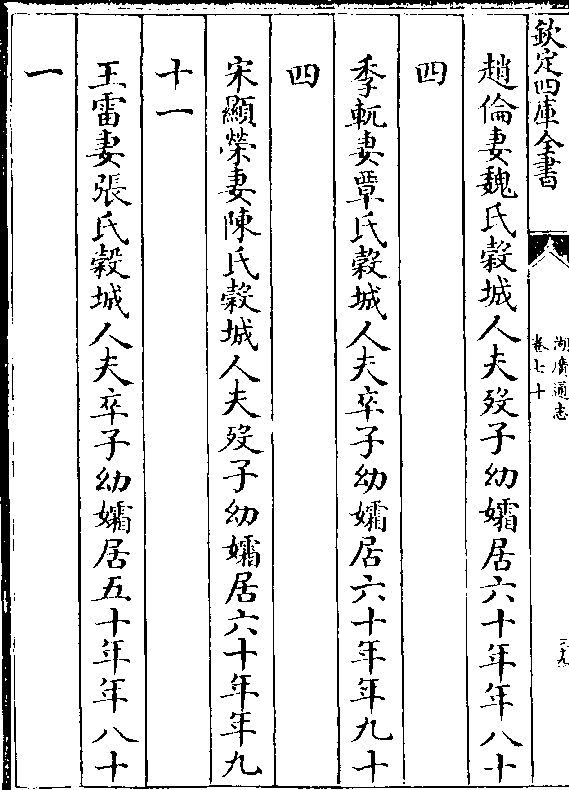 欽定四庫全書
湖廣通志
卷七十
趙倫妻魏氏穀城人夫歿子幼孀居六十年年八十
四
季軏妻覃氏穀城人夫卒子幼孀居六十年年九十
四
宋顯榮妻陳氏穀城人夫歿子幼孀居六十年年九
十一
王雷妻張氏穀城人夫卒子幼孀居五十年年八十
一